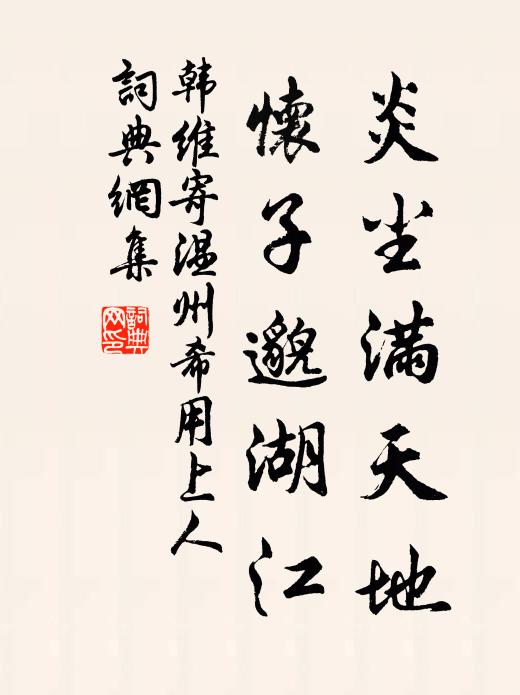 炎尘满天地
懷子邈湖江
韩维寄温州希用上人
詞典網集
詞典网印